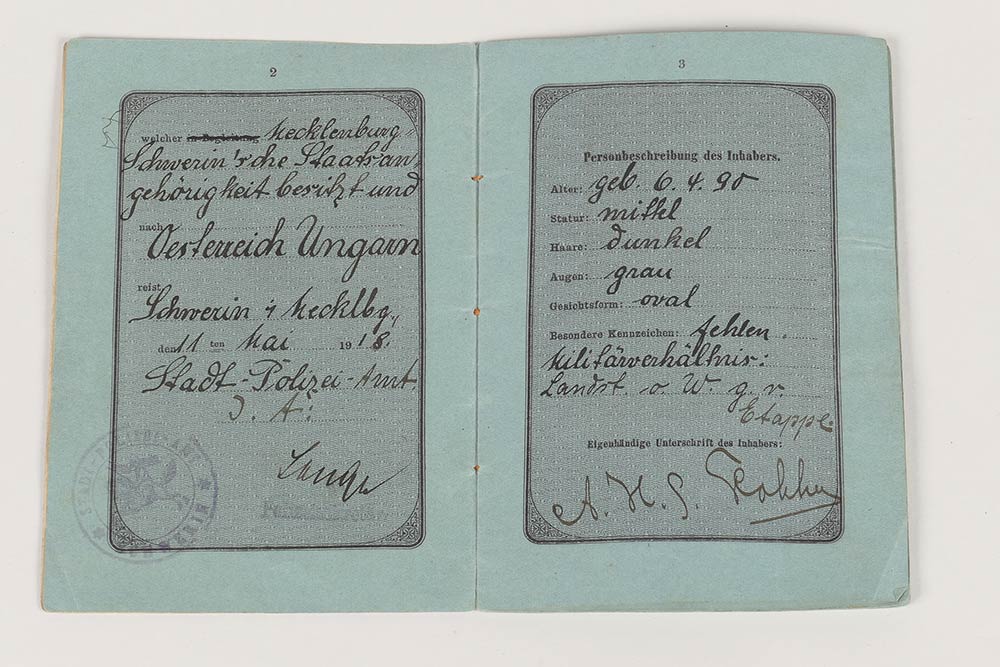 2
welcher in Begleitung Mecklenburg-
Schwerin'sche Staatsan,
gehörigkeit besitzt und
nach
Oesterreich Ungarn
reist
Schwerin i Mecklbg.,
den 11 ten Mai 1918.
Stadt-Polizei-Amt
I. A:
3
Personbeschreibung des Inhabers.
Alter: geb. 6. 4. 90
Statur: mittel
Haare: dunkel
Augen: grau
Gesichtsform: oval
Besondere Kennzeichen: fehlen.
Militärverhältnis:
Landst. o. W. g. v.
Etappe.
Eigenhändige Unterschrift des Inhabers:
A. H. G.